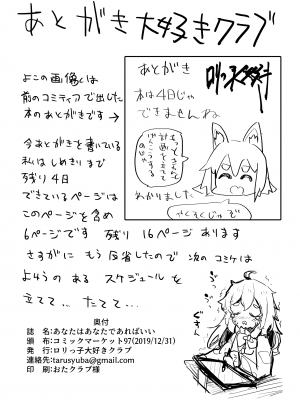 あとがき大好きクラブ
よこの画像は
前のコミティアで出した
本のあとがきです→
今あとがきを書いている
私はしめきりまで
残り4日
できているページは
このページを含め
6ページです 残り 16ページあります
さすがに もう反省したので 次のコミケは
よゆうの ある スケジュールを
立てて… たてて…
あとがき
本は4日じゃ
できませんね
もっときちんと
計画を立てて
げんこうする
のじゃ
わかりました
やくそくじゃぞ
奥付
誌 名:あなたはあなたであればいい
頒 布:コミックマーケット97(2019/12/31)
発 行:ロリっ子大好きクラブ
連絡先:tarusyuba@gmail.com
印 刷:おたクラブ様